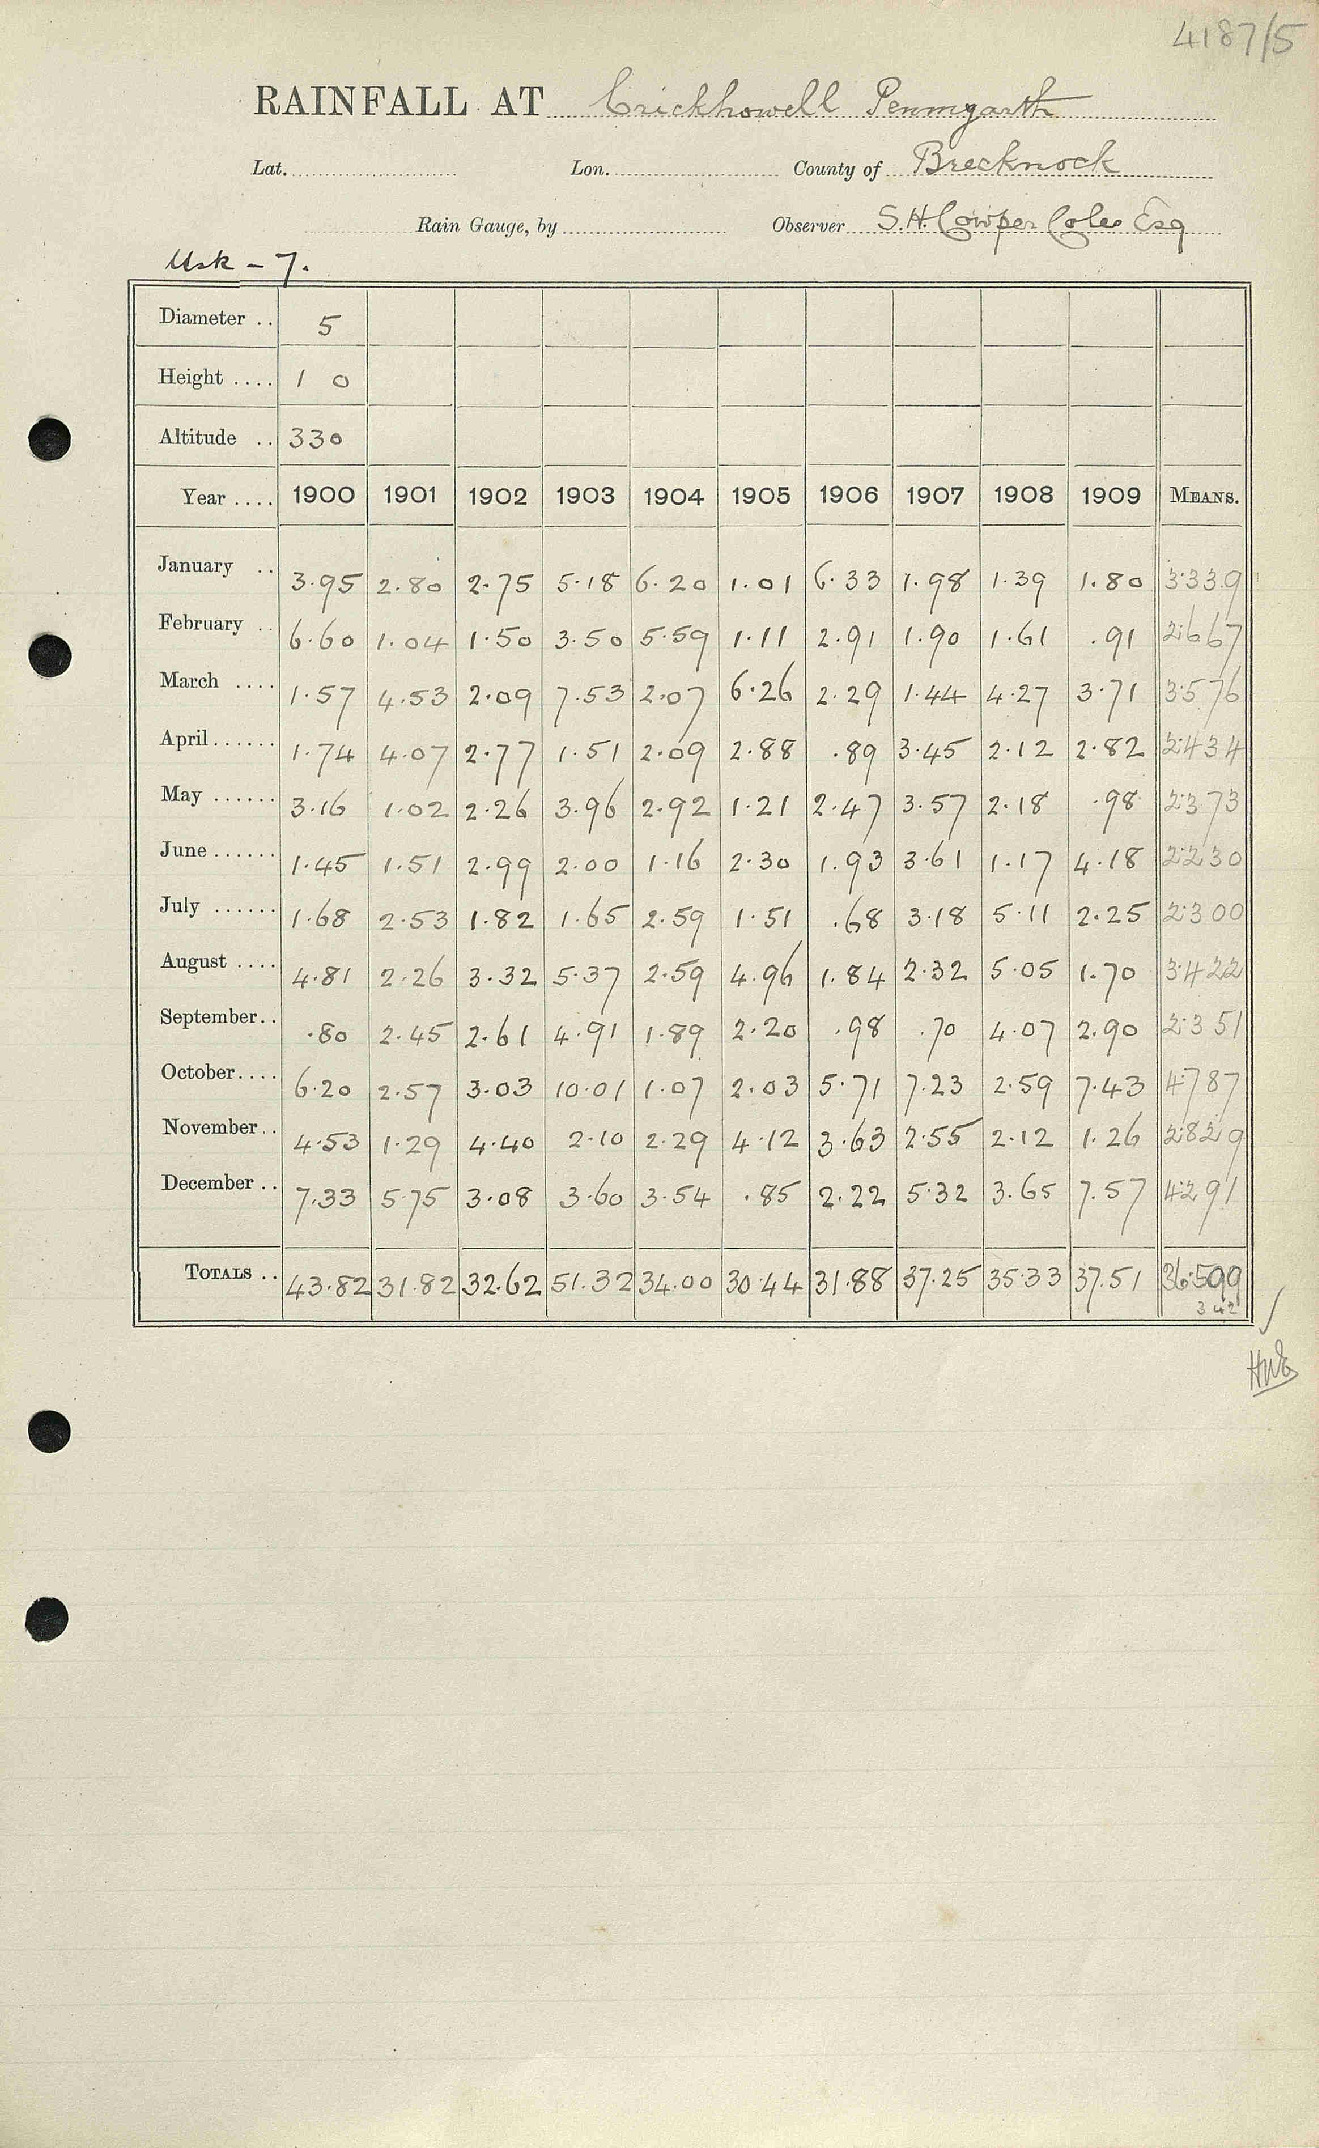 4187/5
RAINFALL AT Crickhowell Penmyarth
Lat. Lon. County of Brecknock
Rain Gauge, by Observer S.H. Cowper Coles Esq
Usk - 7.
Diameter .. 5
Height .... 1 0
Altitude .. 330
Year .... 1900 1901 1902 1903 1904 1905 1906 1907 1908 1909 MEANS.
January .. 3.95 2.80 2.75 5.18 6.20 1.01 6.33 1.98 1.39 1.80 3.339
February .. 6.60 1.04 1.50 3.50 5.59 1.11 2.91 1.90 1.61 .91 2.667
March .... 1.57 4.53 2.09 7.53 2.07 6.26 2.29 1.44 4.27 3.71 3.576
April ...... 1.74 4.07 2.77 1.51 2.09 2.88 .89 3.45 2.12 2.82 2.434
May ...... 3.16 1.02 2.26 3.96 2.92 1.21 2.47 3.57 2.18 .98 2.373
June ...... 1.45 1.51 2.99 2.00 1.16 2.30 1.93 3.61 1.17 4.18 2.230
July ...... 1.68 2.53 1.82 1.65 2.59 1.51 .68 3.18 5.11 2.25 2.300
August .... 4.81 2.26 3.32 5.37 2.59 4.96 1.84 2.32 5.05 1.70 3.422
September .. .80 2.45 2.61 4.91 1.89 2.20 .98 .70 4.07 2.90 2.351
October .... 6.20 2.57 3.03 10.01 1.07 2.03 5.71 7.23 2.59 7.43 4.787
November .. 4.53 1.29 4.40 2.10 2.29 4.12 3.63 2.55 2.12 1.26 2.829
December .. 7.33 5.75 3.08 3.60 3.54 .85 2.22 5.32 3.65 7.57 4.291
TOTALS .. 43.82 31.82 32.62 51.32 34.00 30.44 31.88 37.25 35.33 37.51 36.599
342